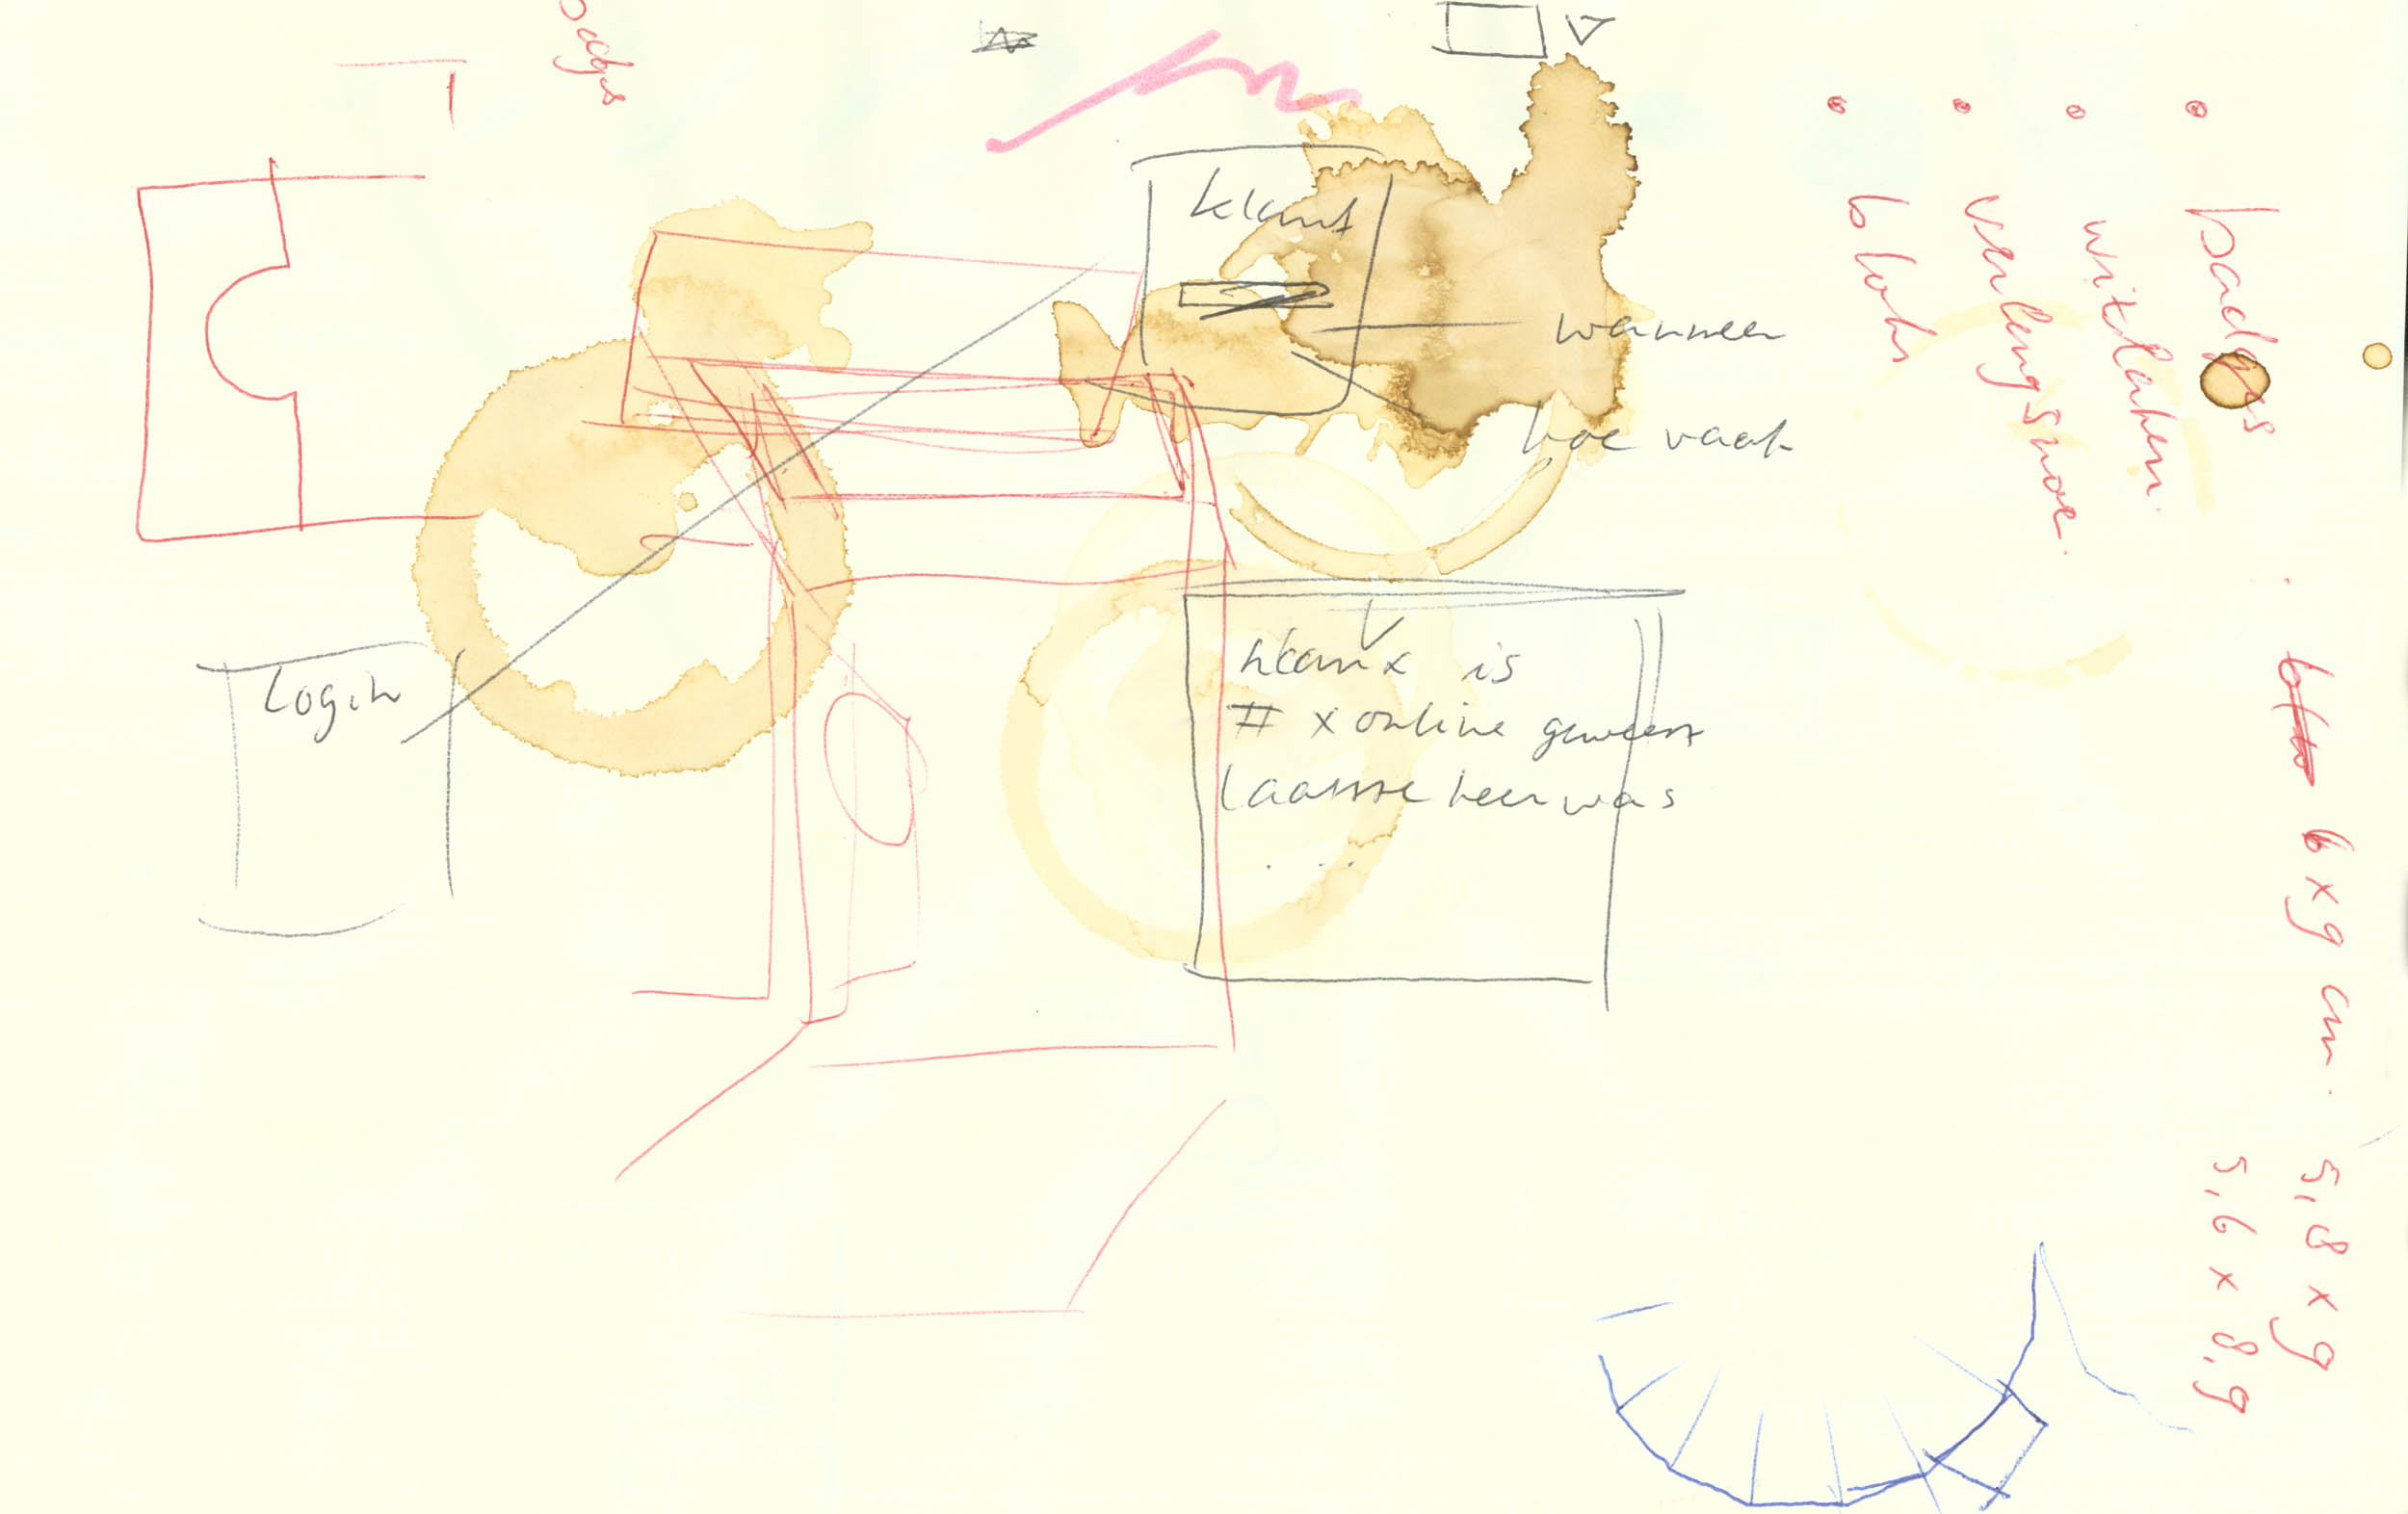 badges
klant
wanneer
hoe vaak
Login
klant is
# x online geweest
laatste keer was
. ...
• badges
• witlaken.
• verlengsnoer.
• blok
6 x 9 cm.
5,8 x 9
5,6 x 8,9